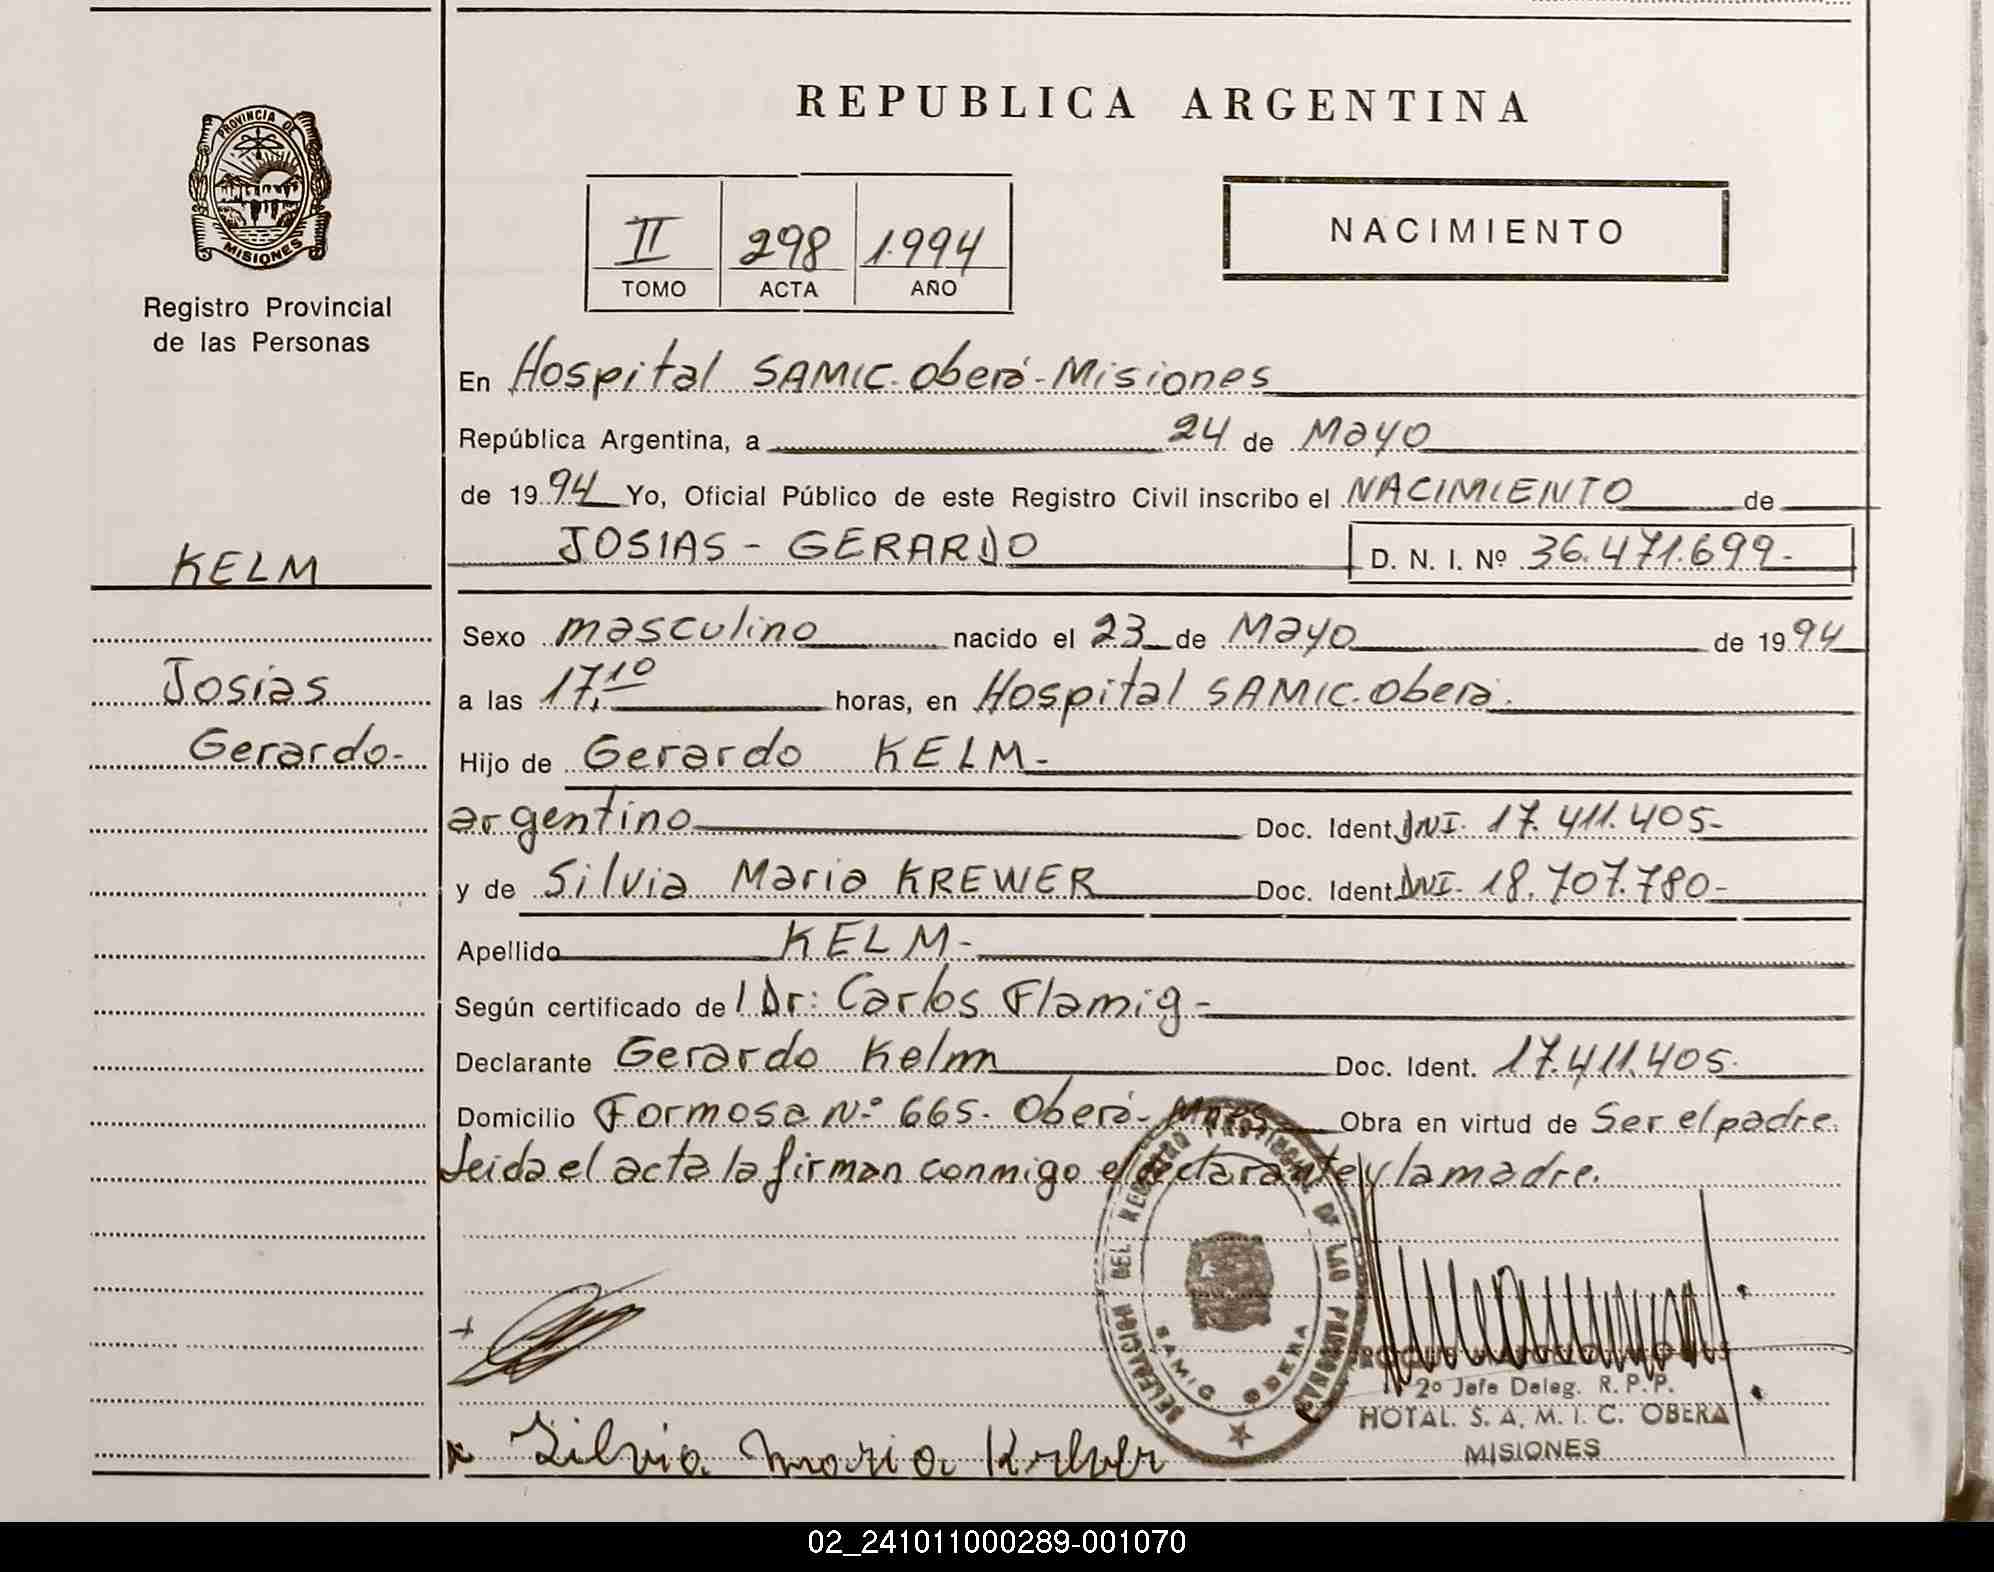 REPUBLICA ARGENTINA
PROVINCIA DE
MISIONES
Registro Provincial
de las Personas
II 298 1.994
TOMO ACTA AÑO
NACIMIENTO
En Hospital SAMIC. Oberá - Misiones
República Argentina, a 24 de Mayo
de 1994 Yo, Oficial Público de este Registro Civil inscribo el NACIMIENTO de
JOSIAS - GERARDO D. N. I. Nº 36.471.699.-
KELM
Josias
Gerardo.-
Sexo masculino nacido el 23 de Mayo de 1994
a las 17,10 horas, en Hospital SAMIC. Oberá.
Hijo de Gerardo KELM.-
argentino Doc. Ident. DNI. 17.411.405-
y de Silvia Maria KREWER Doc. Ident. DNI. 18.707.780-
Apellido KELM.-
Según certificado de l Dr: Carlos Flamig-
Declarante Gerardo Kelm Doc. Ident. 17.411.405.
Domicilio Formosa Nº 665. Oberá- Mnes Obra en virtud de Ser el padre.
Leida el acta la firman conmigo el declarante y la madre.
DELEGACION DEL REGISTRO PROVINCIAL DE LAS PERSONAS
SAMIC OBERA
2º Jefe Deleg. R.P.P.
HOTAL. S. A. M. I. C. OBERA
MISIONES
Silvia Maria Krewer
02_241011000289-001070